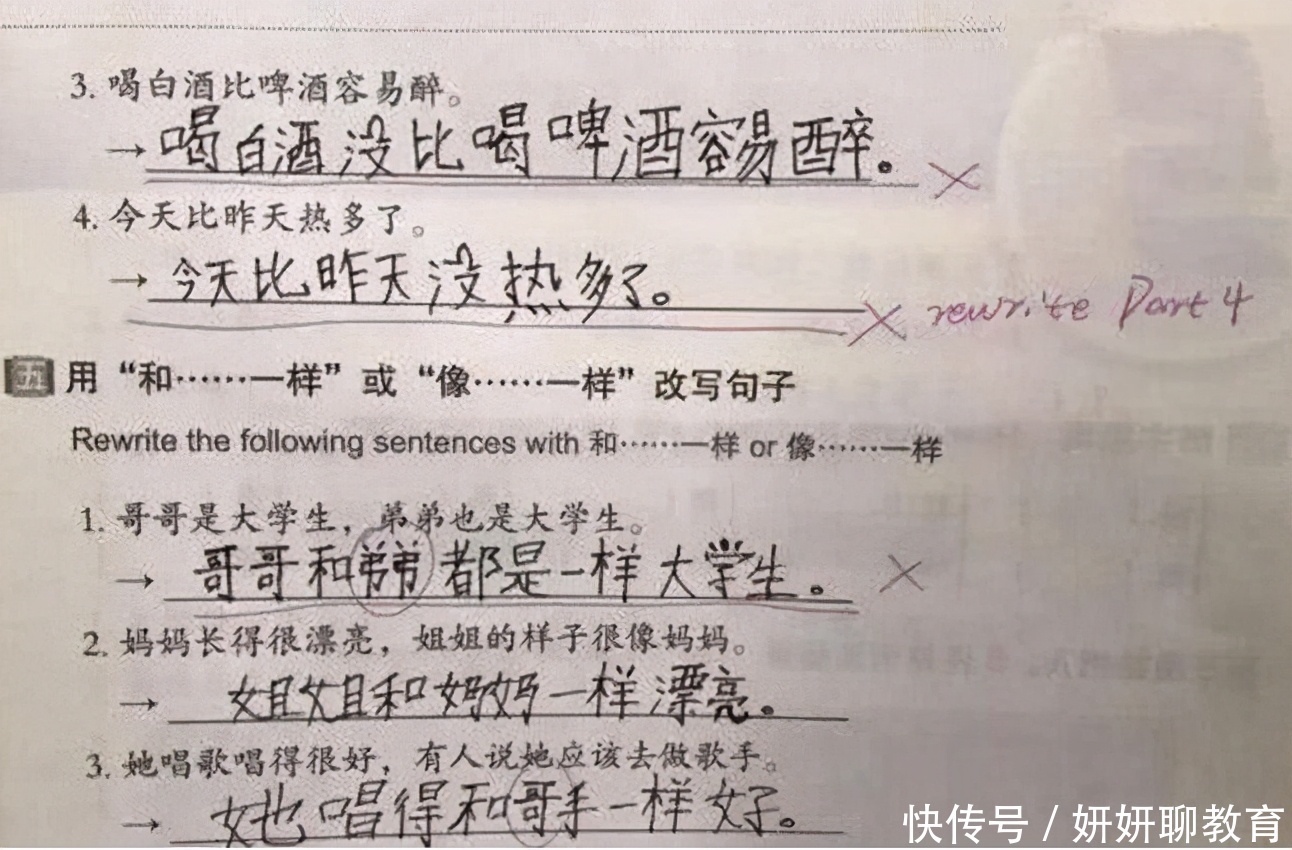 3. 喝白酒比啤酒容易醉。
→ 喝白酒没比喝啤酒容易醉。 ×
4. 今天比昨天热多了。
→ 今天比昨天没热多了。 × rewrite Part 4
五 用“和……一样”或“像……一样”改写句子
Rewrite the following sentences with 和……一样 or 像……一样
1. 哥哥是大学生，弟弟也是大学生。
→ 哥哥和弟弟都是一样大学生。 ×
2. 妈妈长得很漂亮，姐姐的样子很像妈妈。
→ 姐姐和妈妈一样漂亮。
3. 她唱歌唱得很好，有人说她应该去做歌手。
→ 她唱得和哥手一样好。
快传号 / 妍妍聊教育